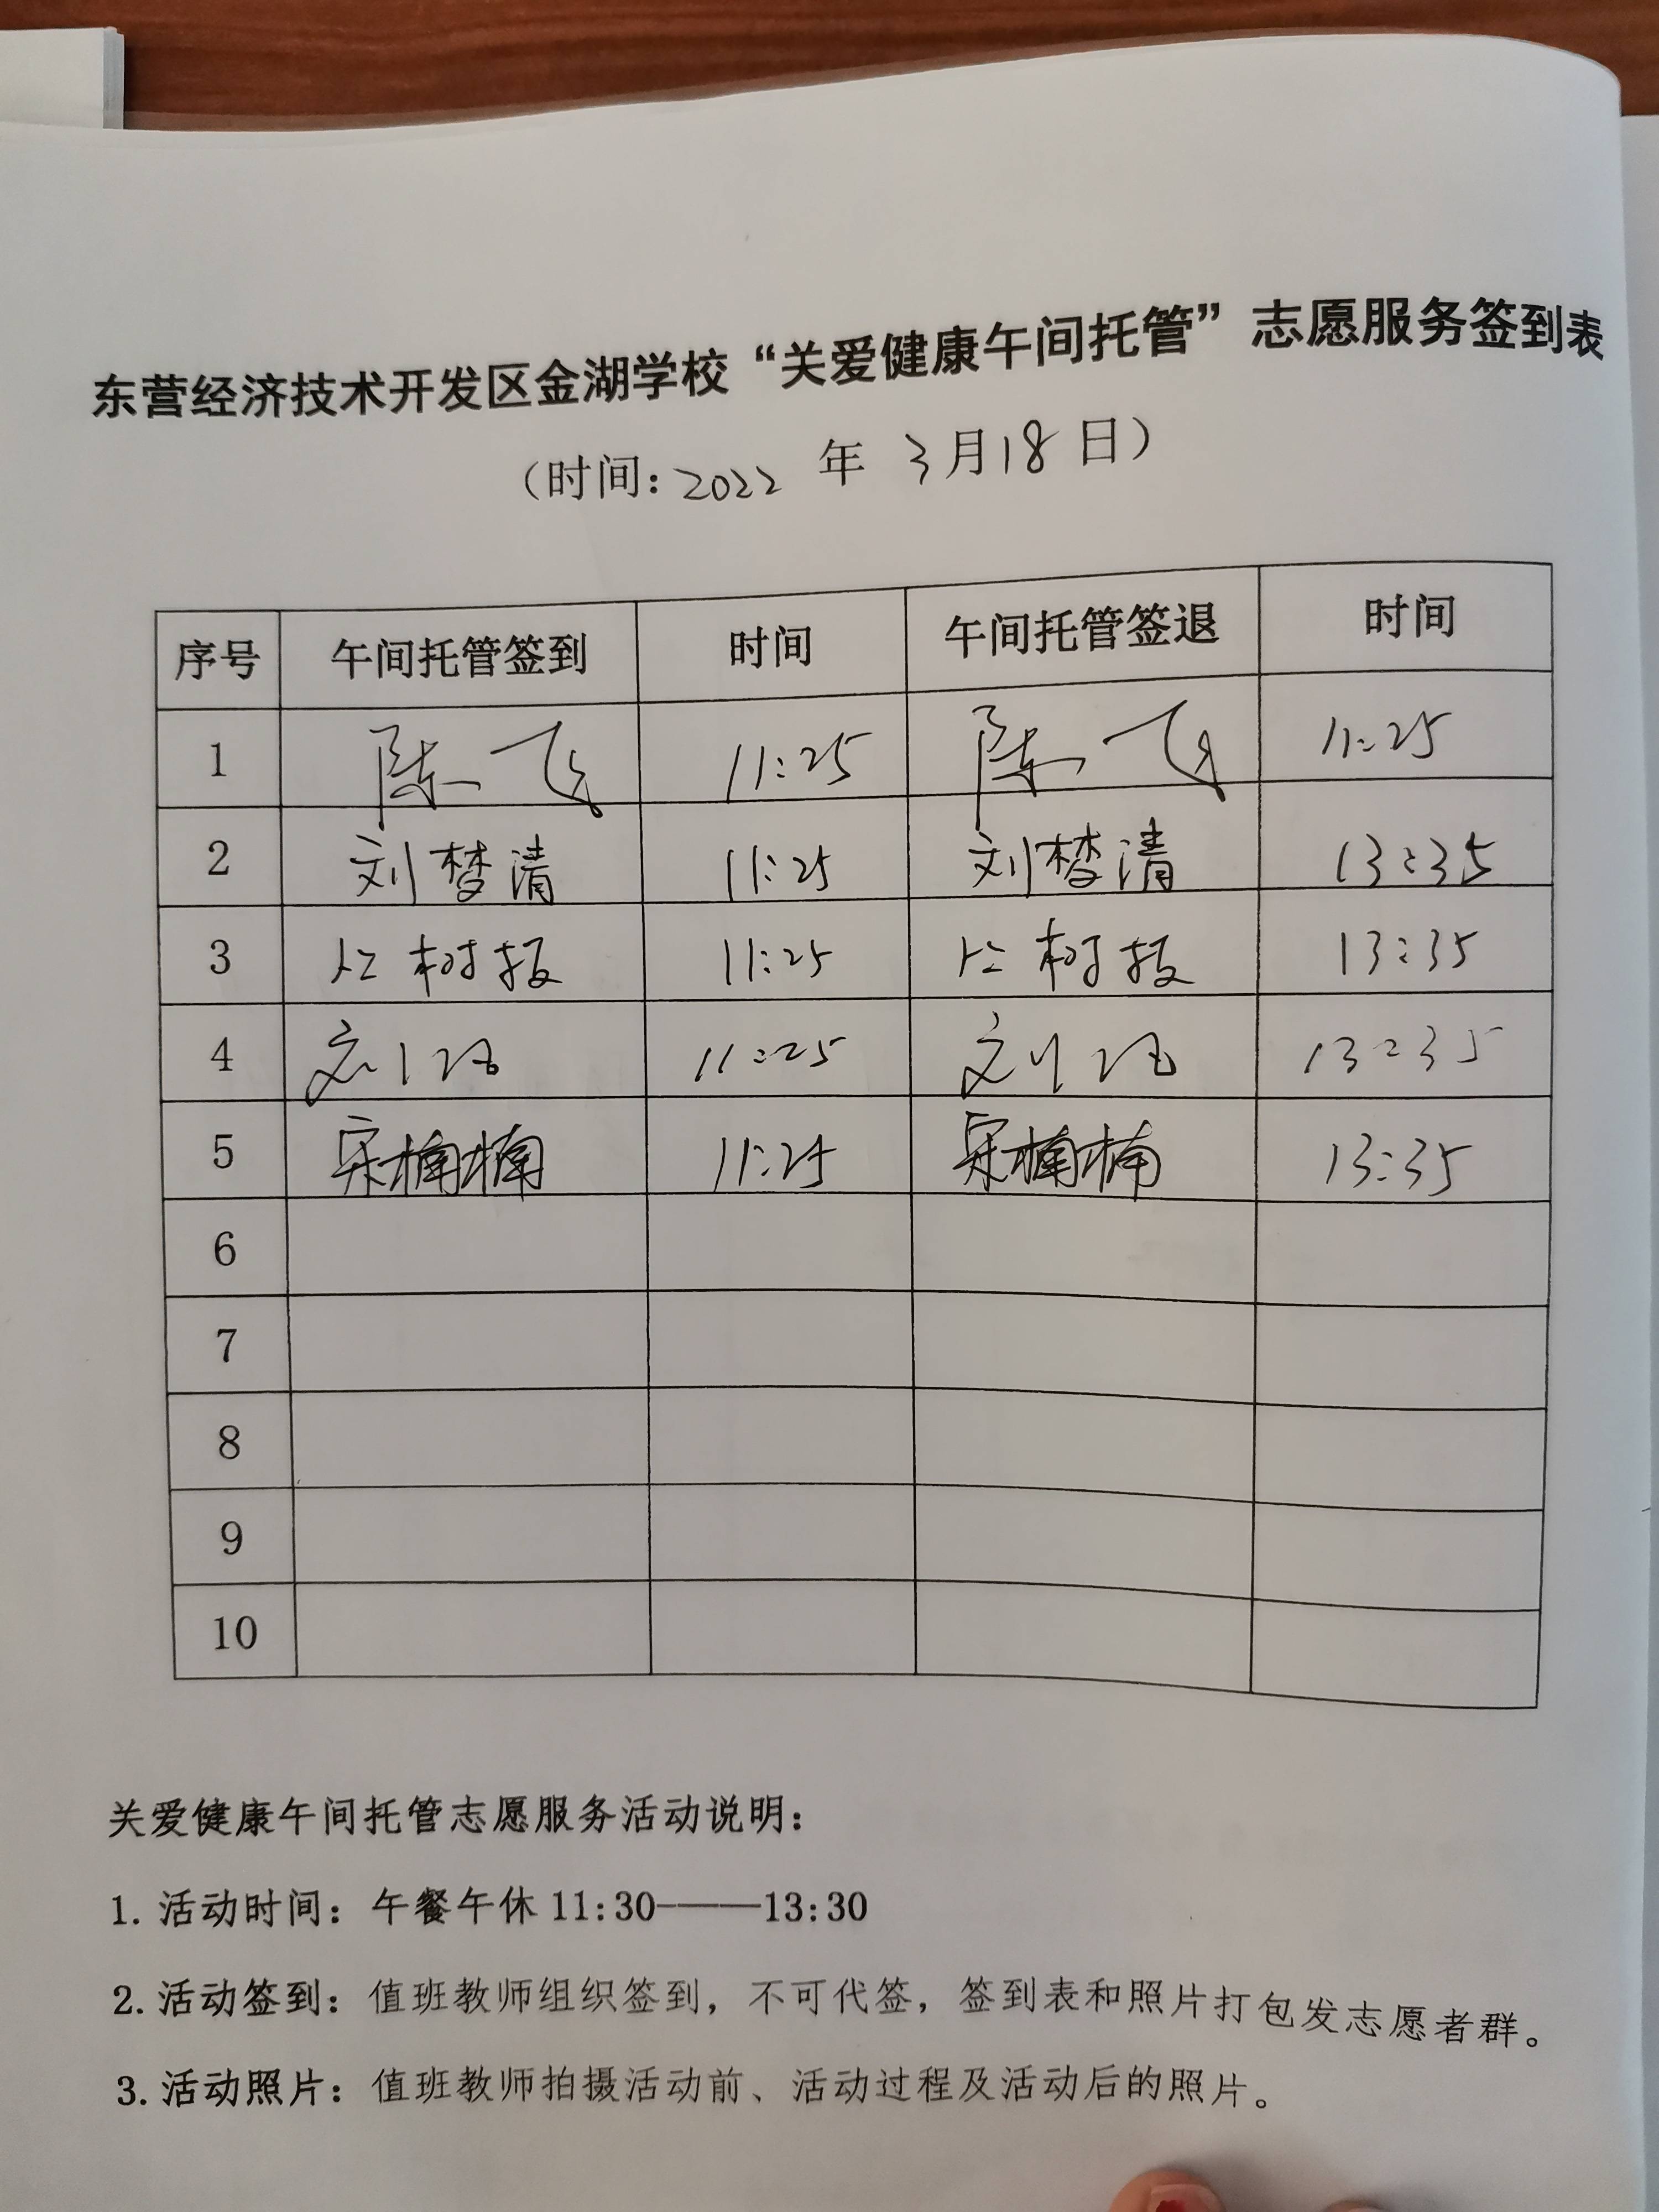 东营经济技术开发区金湖学校“关爱健康午间托管”志愿服务签到表
（时间：2022 年 3月18日）
序号 午间托管签到 时间 午间托管签退 时间
1 陈飞 11:25 陈飞 11:25
2 刘梦清 11:25 刘梦清 13:35
3 树振 11:25 树振 13:35
4 刘 11:25 刘 13:35
5 宋楠楠 11:25 宋楠楠 13:35
6
7
8
9
10
关爱健康午间托管志愿服务活动说明：
1. 活动时间：午餐午休 11:30-——13:30
2. 活动签到：值班教师组织签到，不可代签，签到表和照片打包发志愿者群。
3. 活动照片：值班教师拍摄活动前、活动过程及活动后的照片。